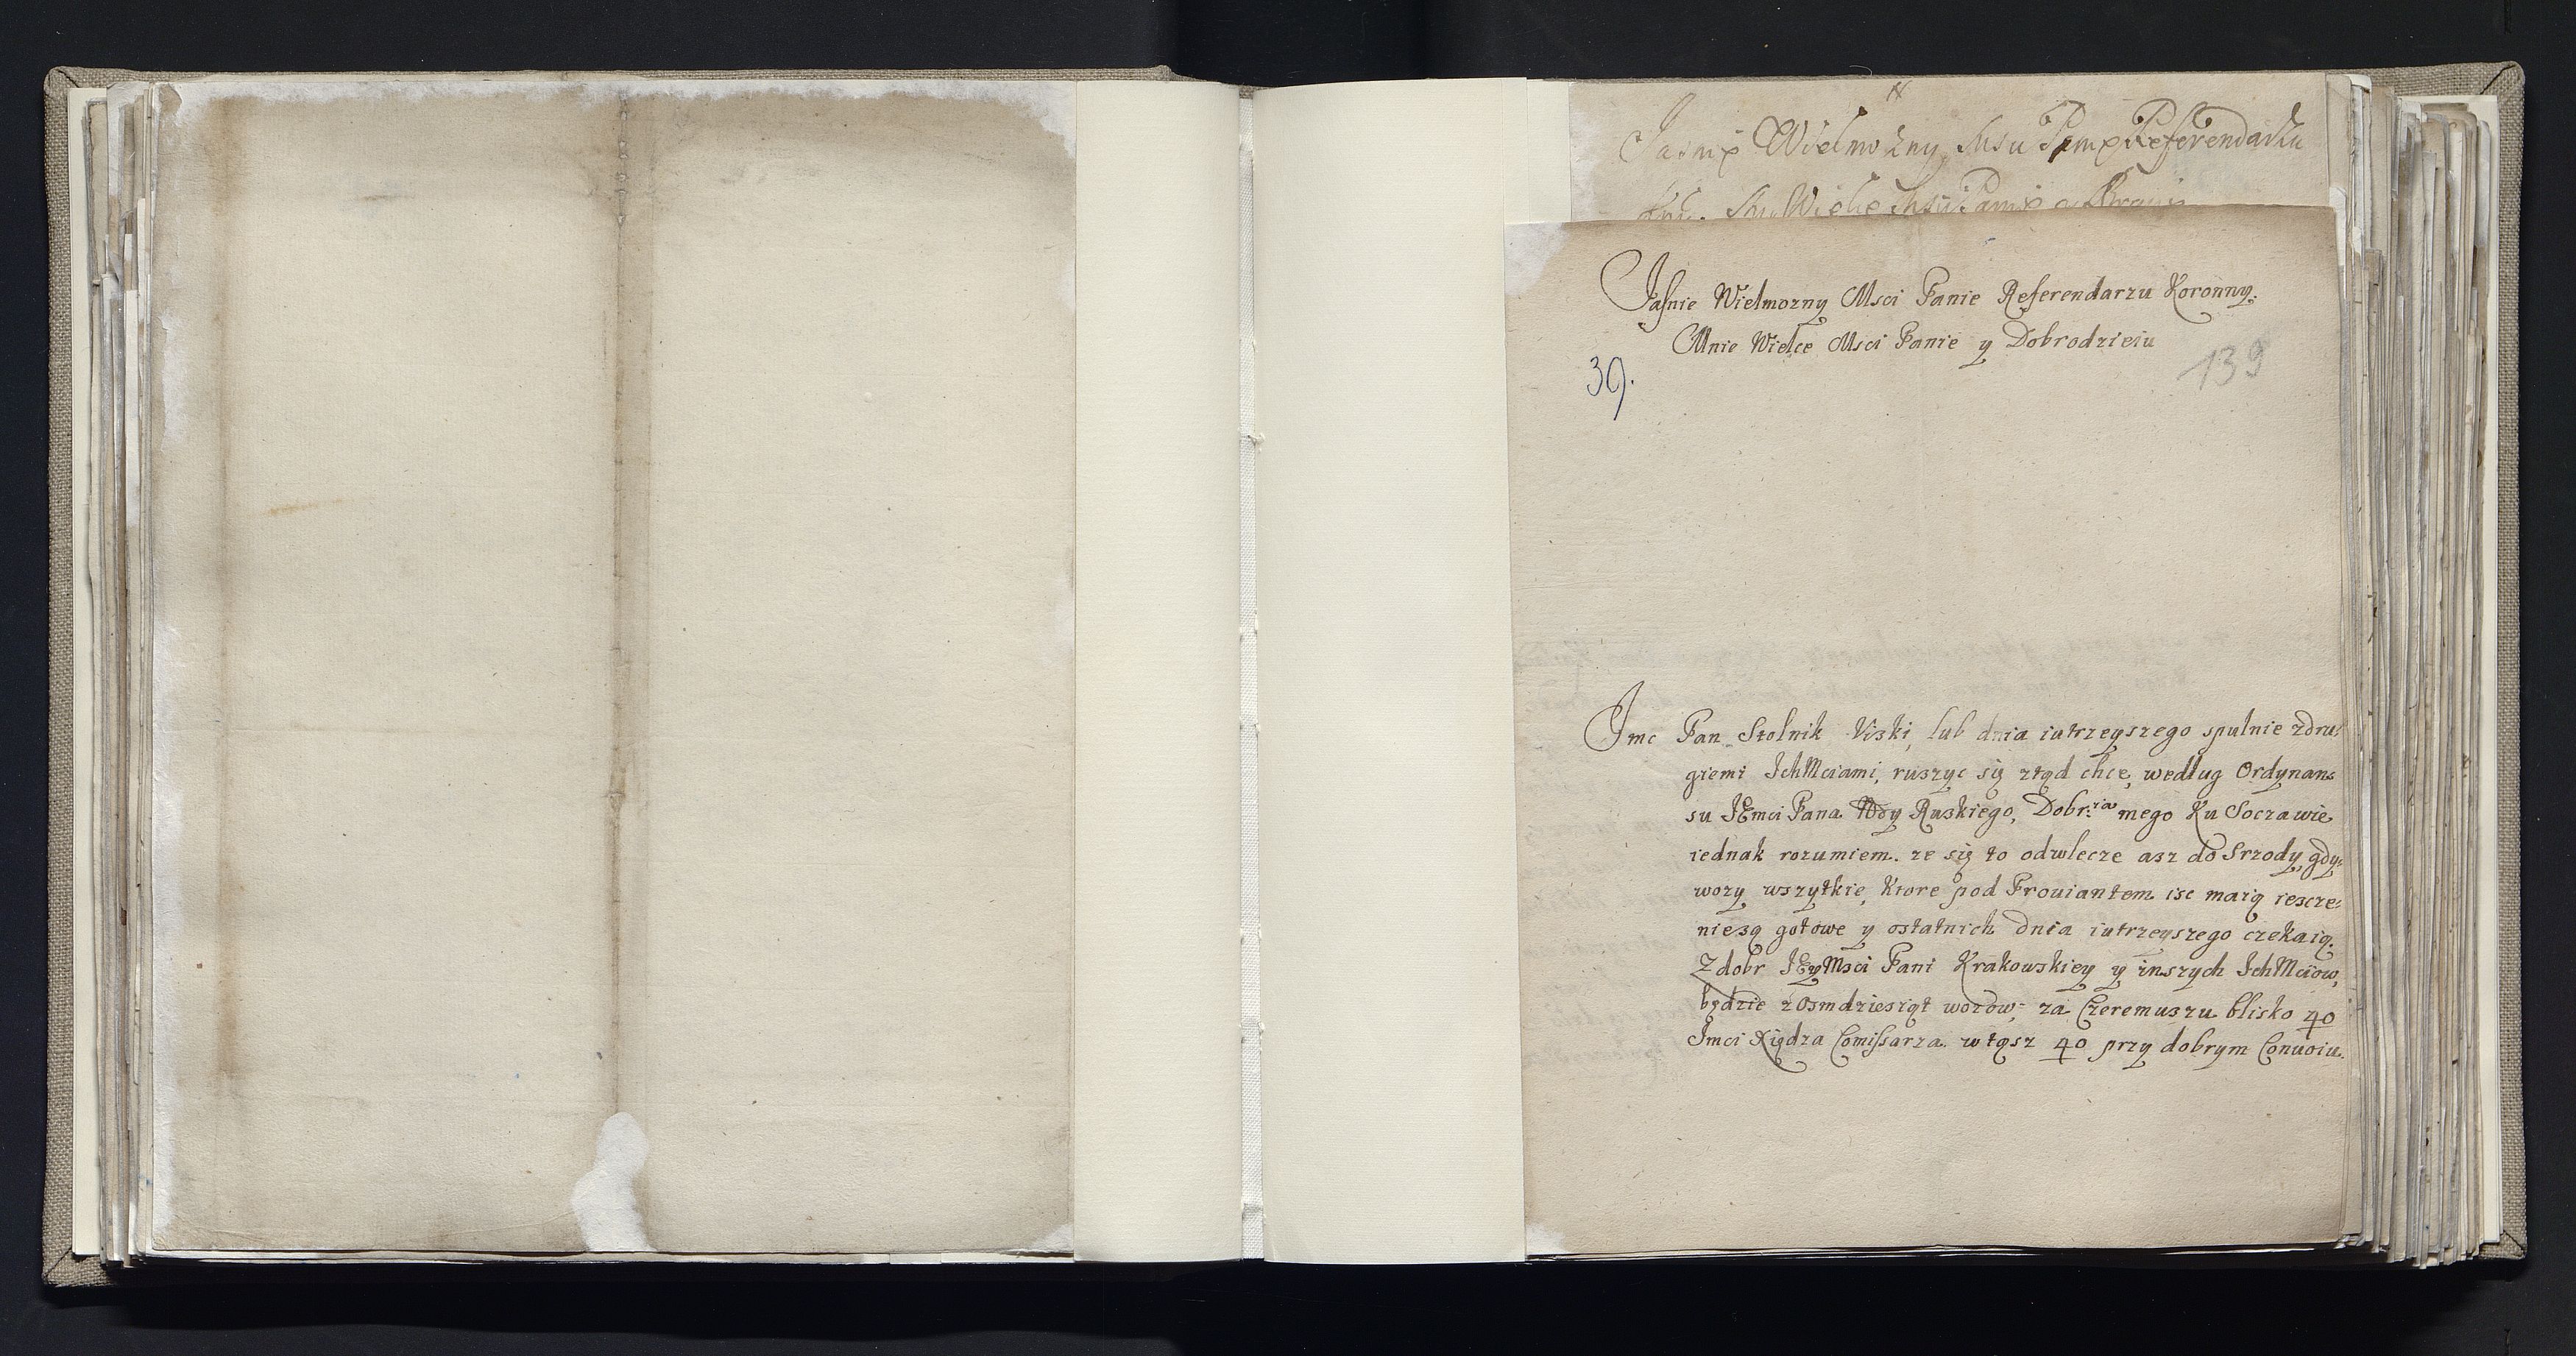 Jasnie Wielmozny Msci Panie Referendarzu
Wielce Panie
Jasnie Wielmozny Msci Panie Referendarzu Koronny.
Mnie Wielce Msci Panie y Dobrodzieiu
39.
139
Jmc Pan Stolnik Viski, lub dnia iutrzeyszego spulnie zdru:
giemi IchMciami, ruszyc się ztąd chce, według Ordynan:
su JEmci Pana Wdy Ruskiego, Dobr:zia mego Ku Soczawie
iednak rozumiem. ze się to odwlecze asz do Srzody, gdy:
wozy wszytkie, Ktore pod Prouiantem isc maią iescze:
niesą gotowe y ostatnich dnia iutrzeyszego czekaią.
Zdobr JEyMsci Pani Krakowskiey y inszych IchMciow,
będzie zOsmdziesiąt wozow; za Czeremuszu blisko 40
Jmci Xiędza Comissarza. wtąsz 40 przy dobrym Conuoiu.